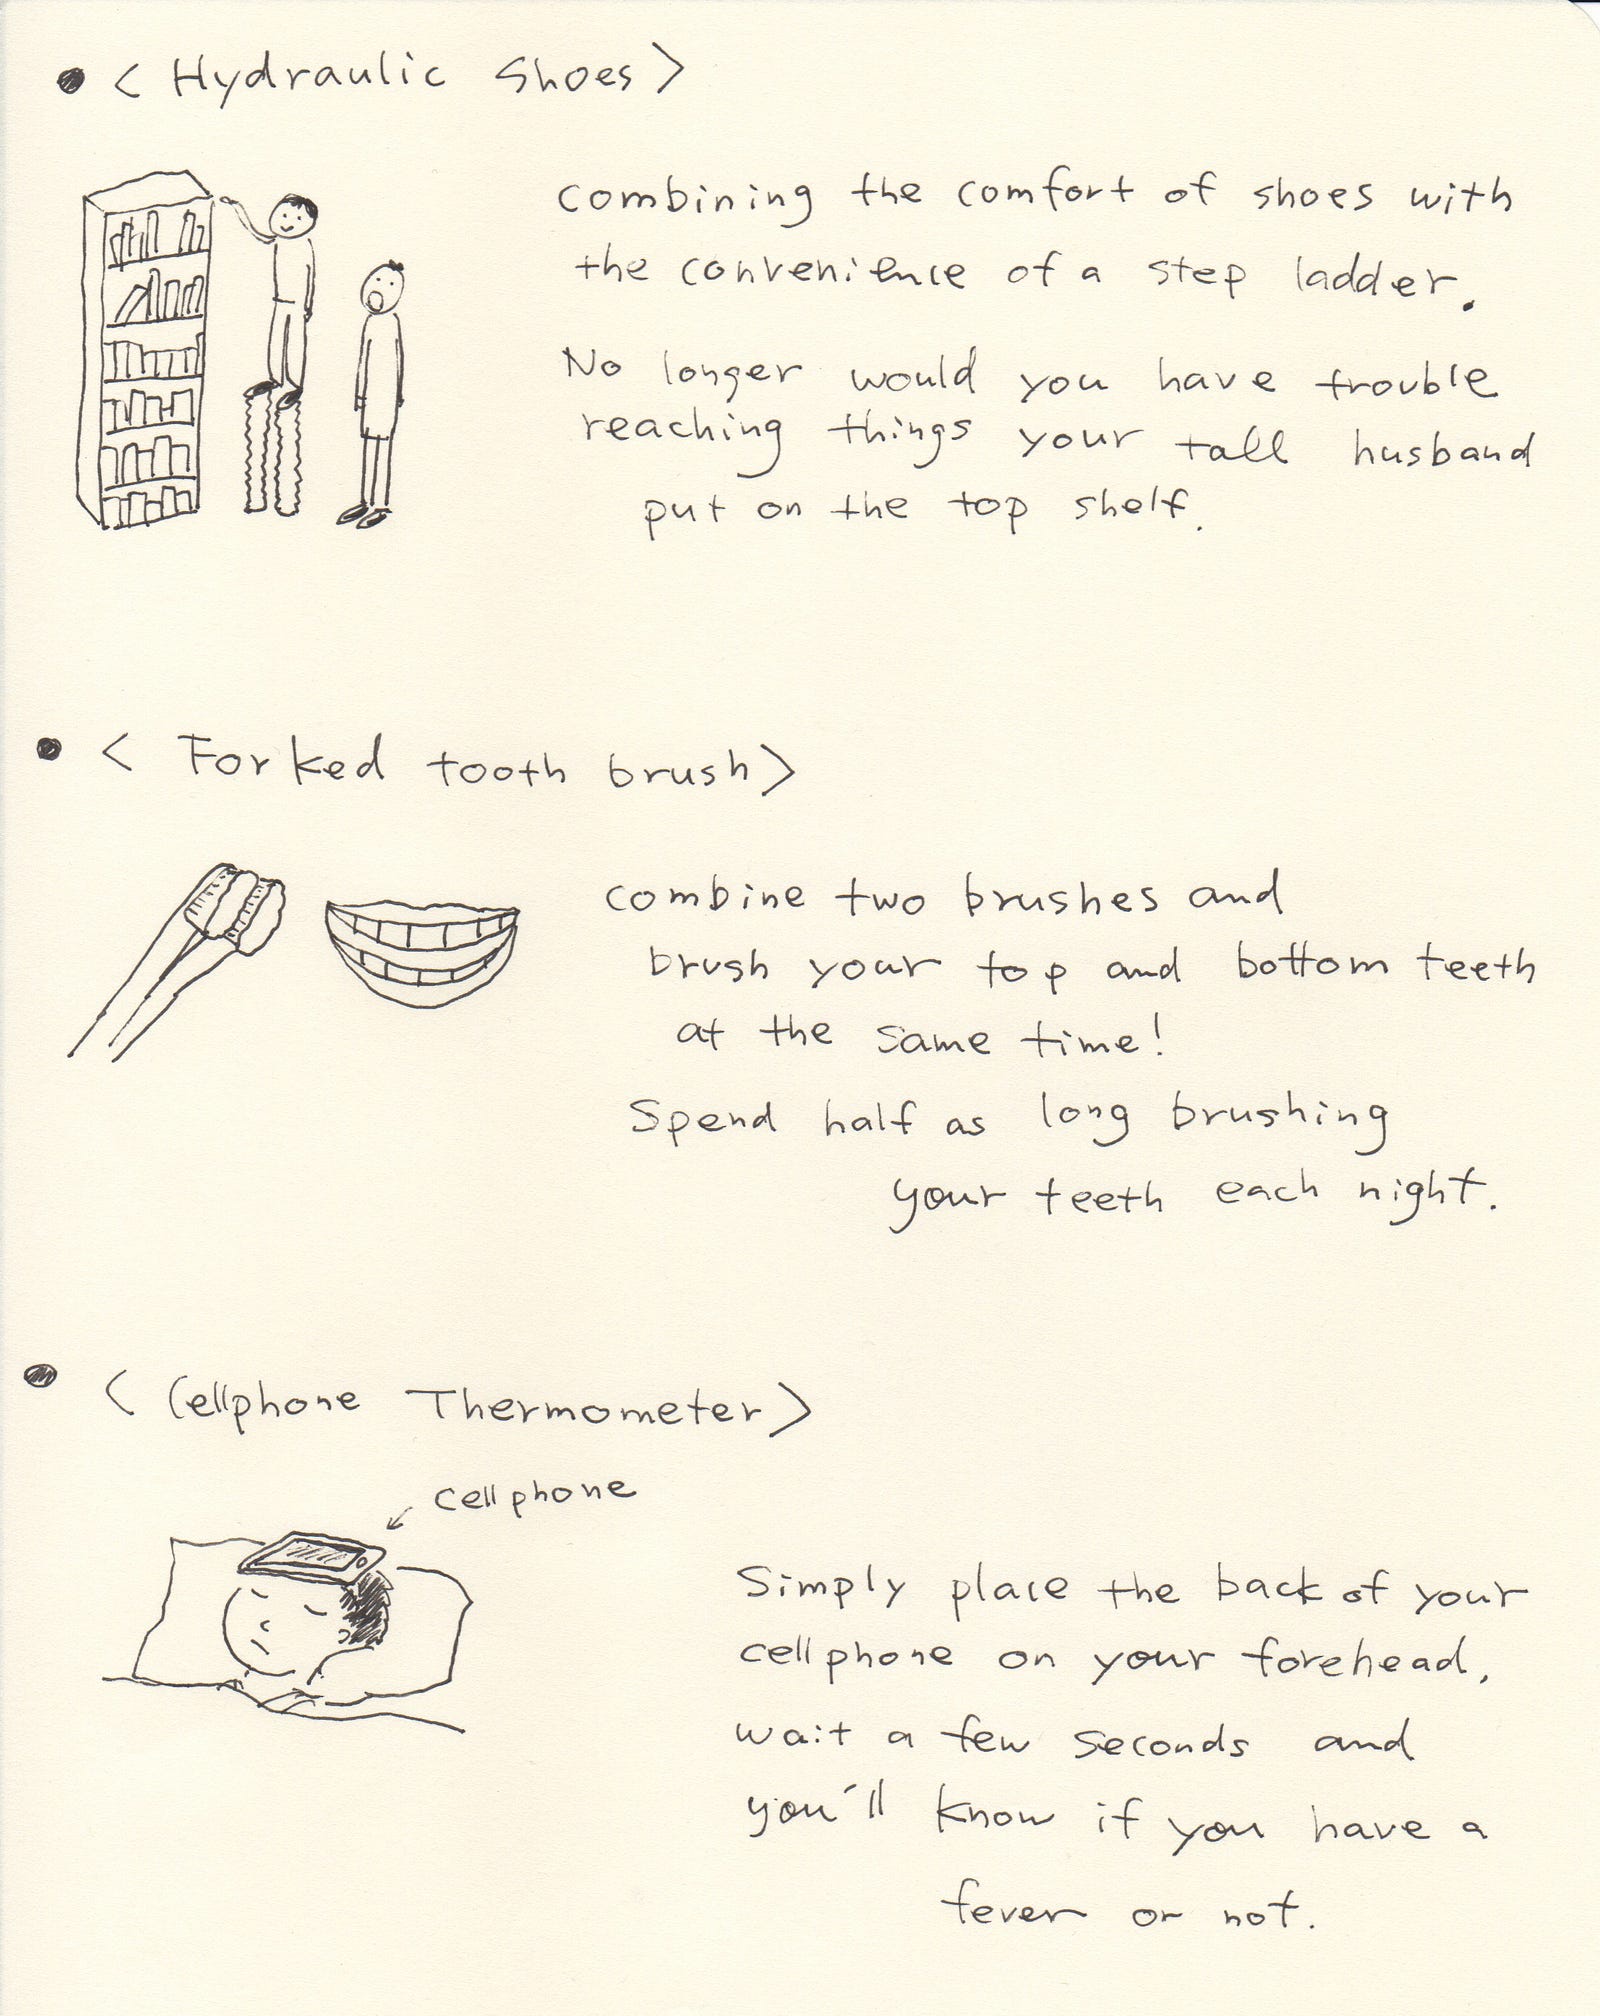 • < Hydraulic Shoes >
combining the comfort of shoes with
the convenience of a step ladder.
No longer would you have trouble
reaching things your tall husband
put on the top shelf.
• < Forked tooth brush >
combine two brushes and
brush your top and bottom teeth
at the same time!
Spend half as long brushing
your teeth each night.
• < Cellphone Thermometer >
cellphone
Simply place the back of your
cellphone on your forehead,
wait a few seconds and
you'll know if you have a
fever or not.